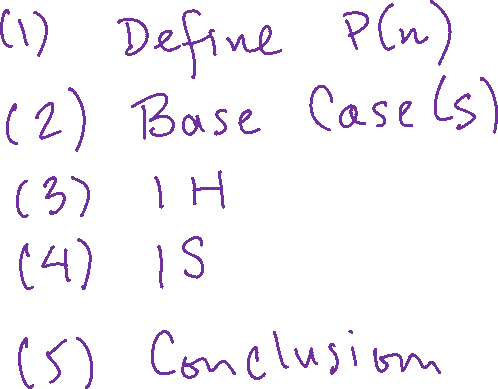 (1) Define P(n)
(2) Base Case(s)
(3) IH
(4) IS
(5) Conclusion